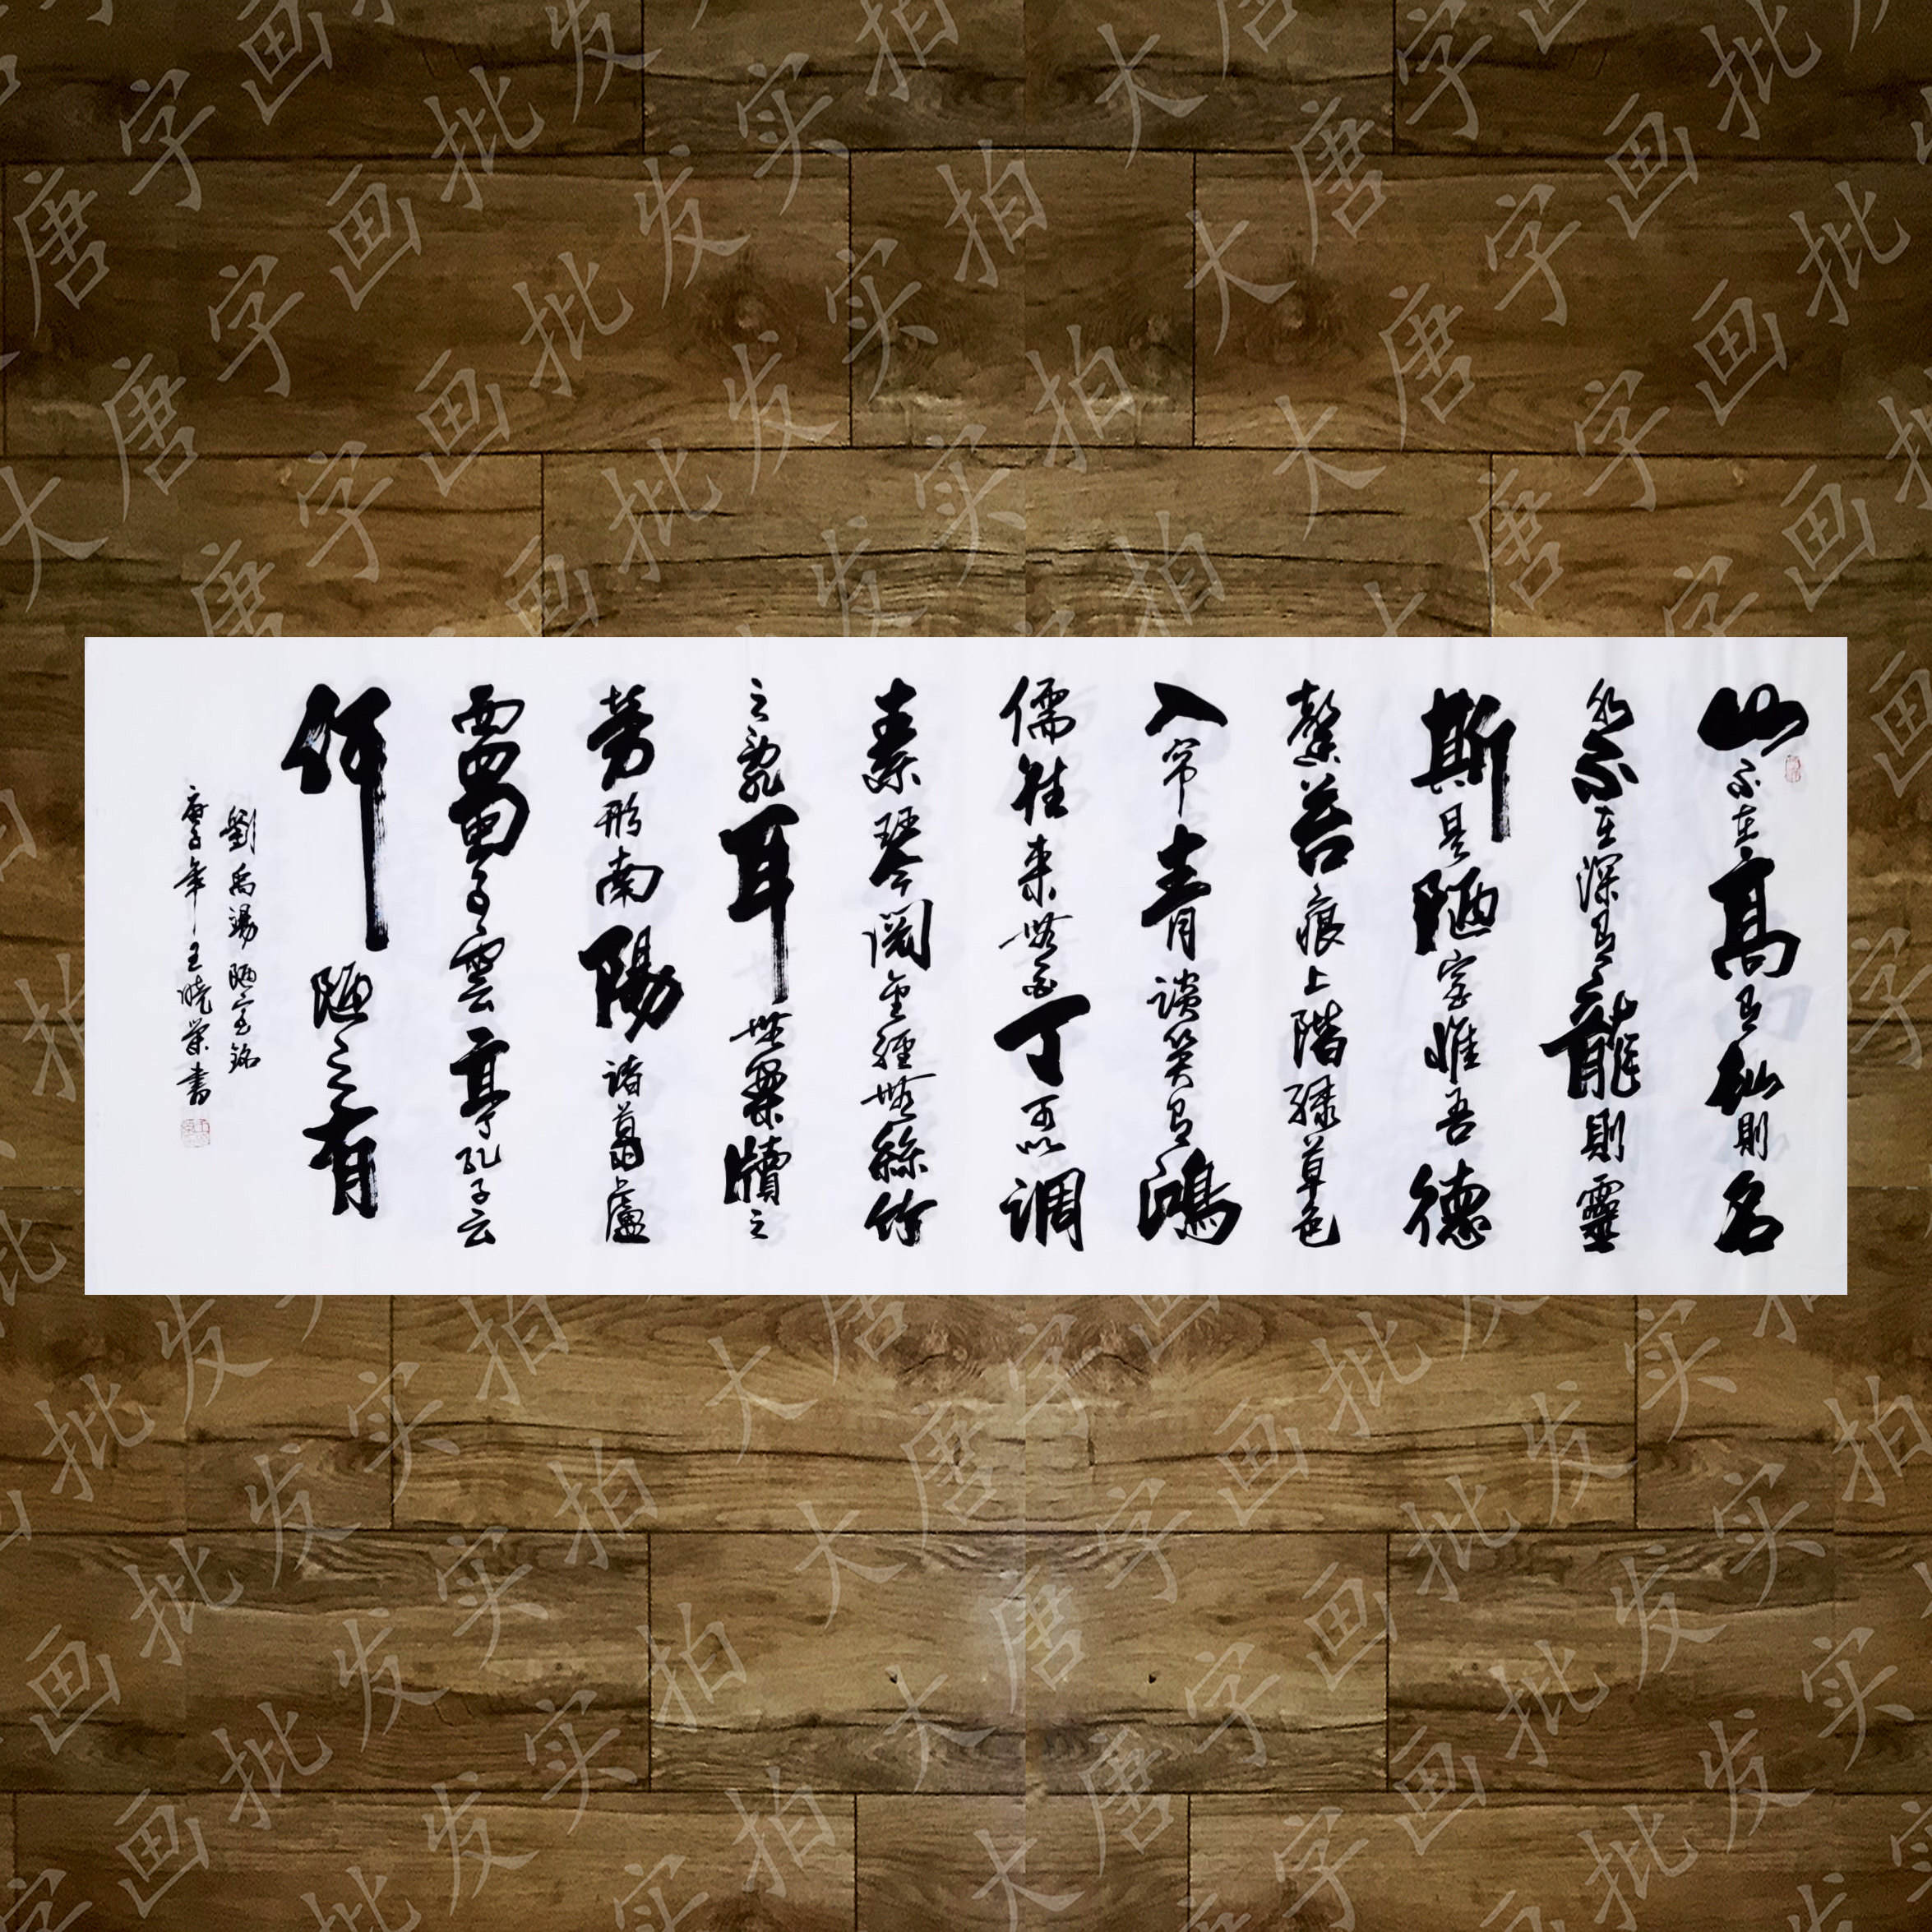 山不在高有仙則名
水不在深有龍則靈
斯是陋室惟吾德
馨苔痕上階緑草色
入帘青談笑有鴻
儒往来無白丁可以調
素琴閱金經無絲竹
之亂耳無案牘之
勞形南陽諸葛廬
西蜀子雲亭孔子云
何陋之有
劉禹錫陋室銘
庚子年王曉榮書
大唐字画批发实拍